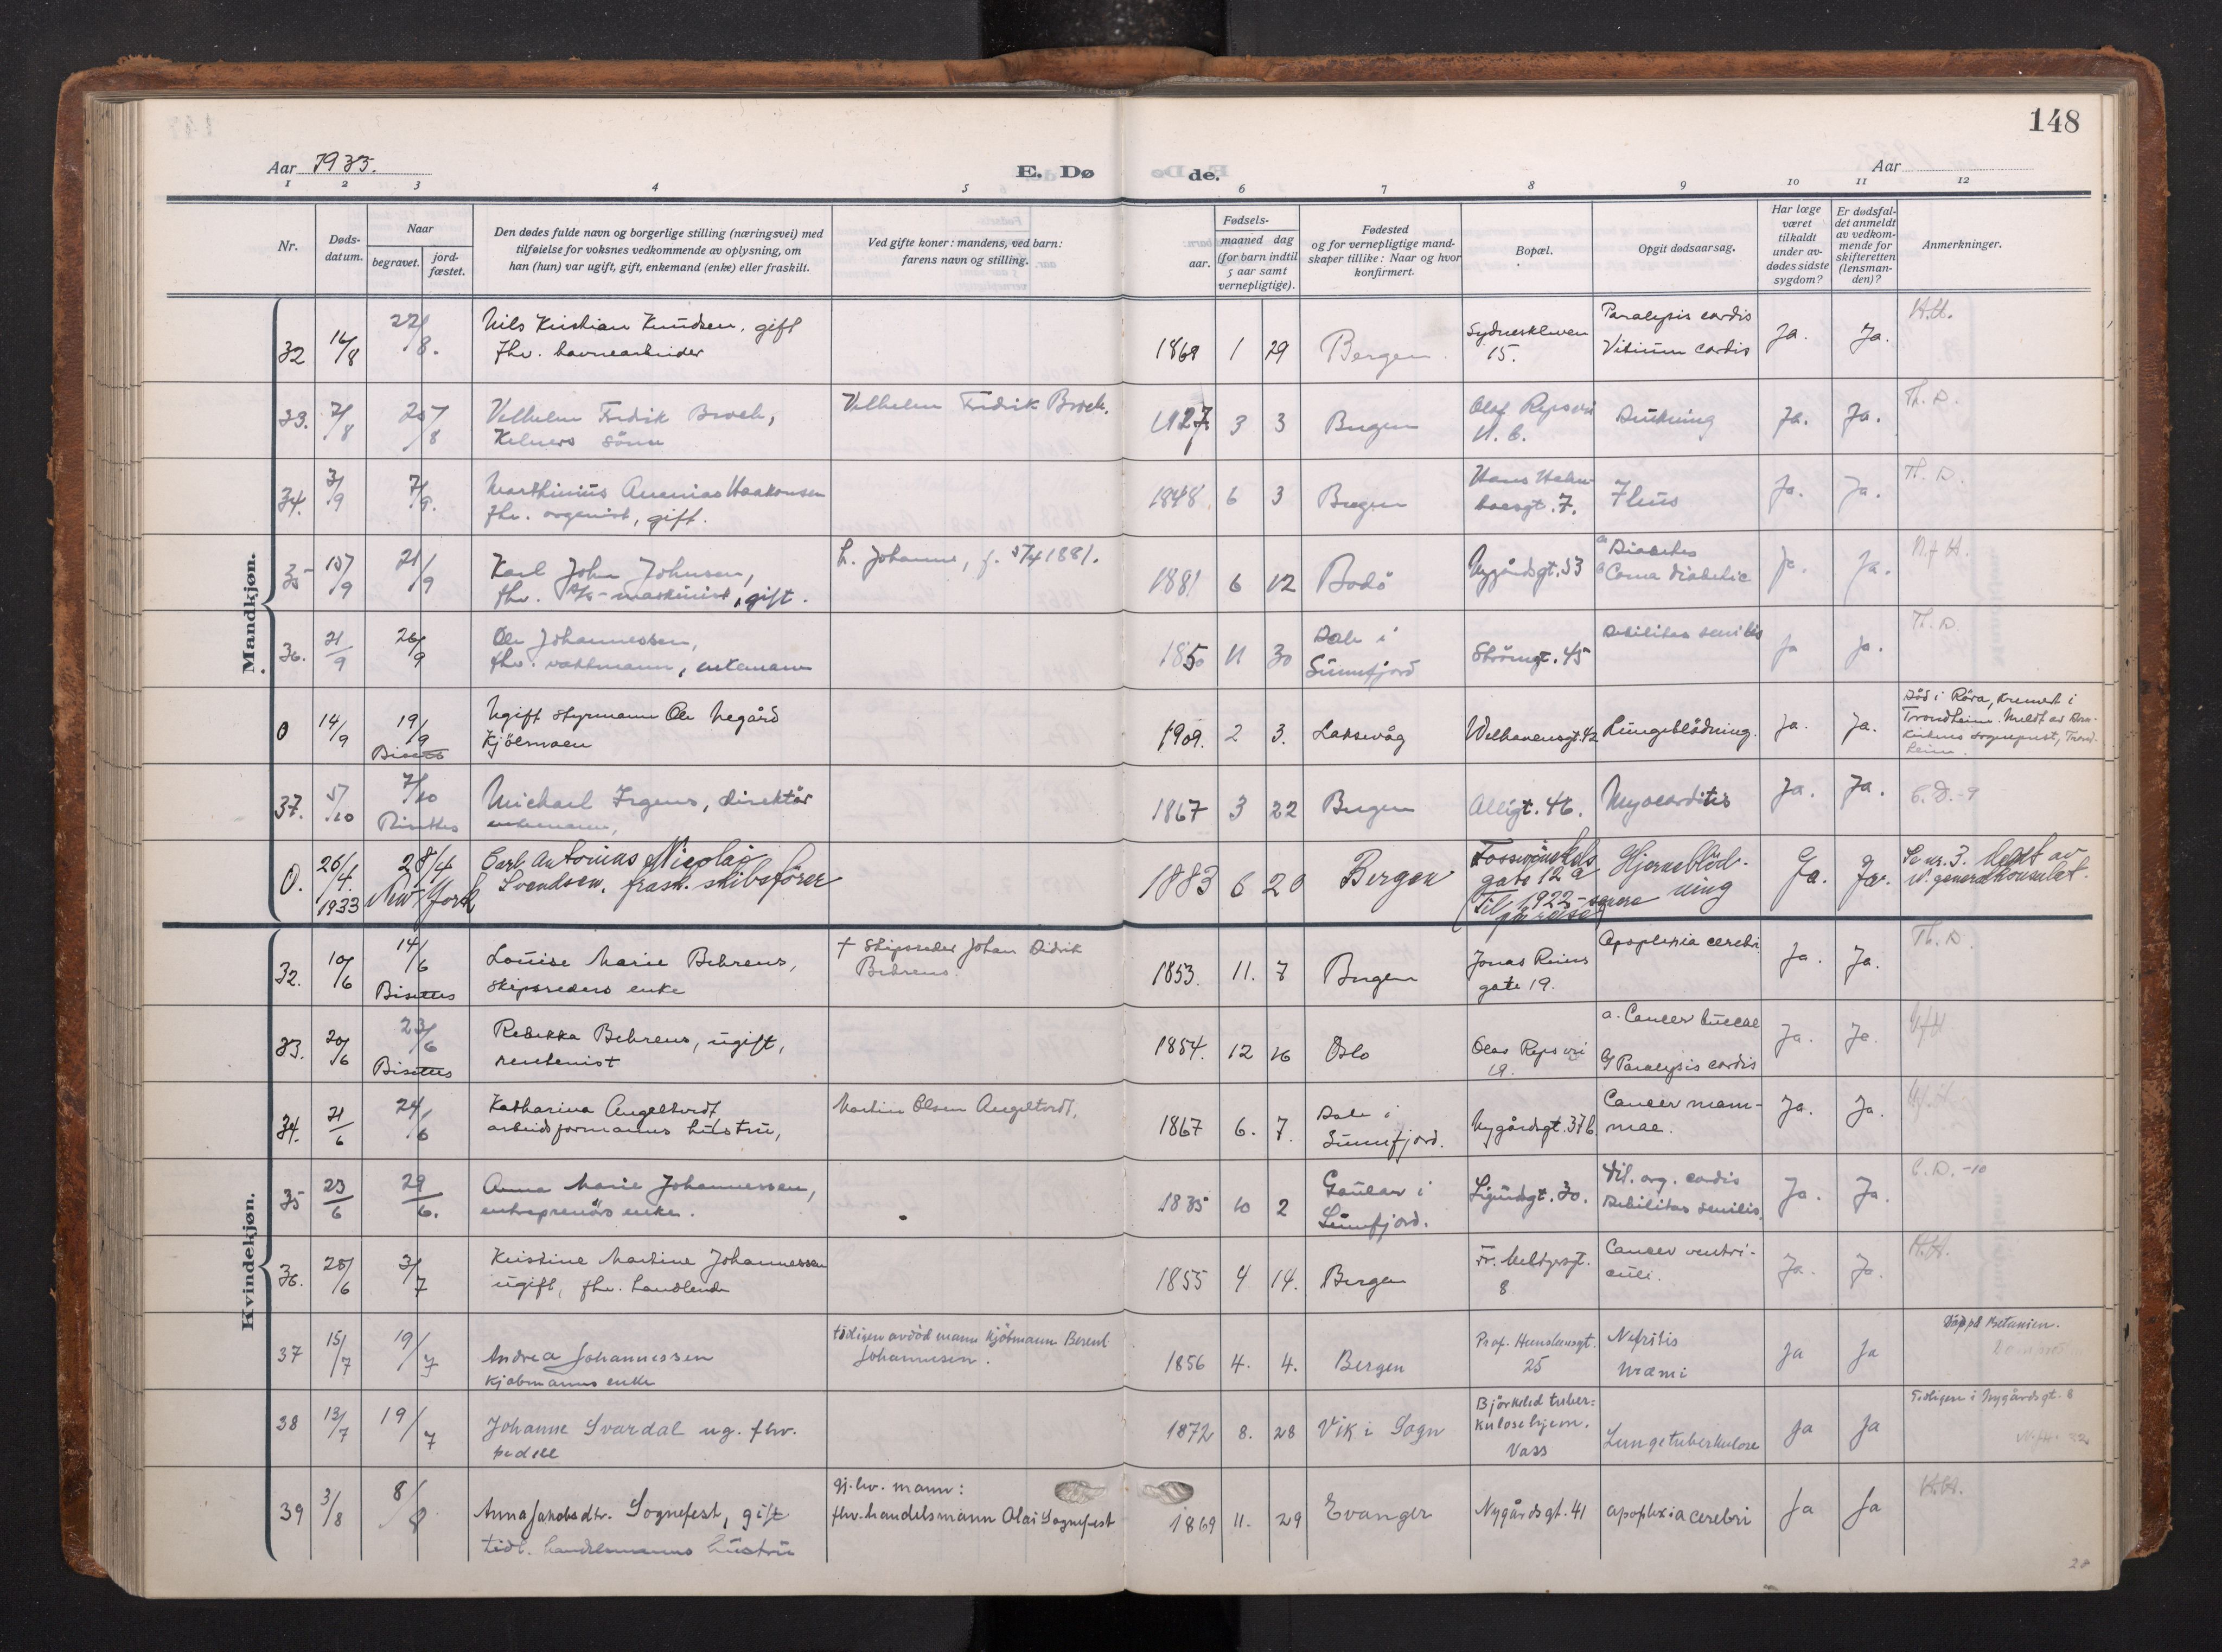 148
Aar 1933.
E. Dø
de.
Aar
1 2 3 4 5 6 7 8 9 10 11 12
Nr.
Døds-
datum.
Naar
begravet.
jord-
fæstet.
Den dødes fulde navn og borgerlige stilling (næringsvei) med
tilføielse for voksnes vedkommende av oplysning, om
han (hun) var ugift, gift, enkemand (enke) eller fraskilt.
Ved gifte koner: mandens, ved barn:
farens navn og stilling.
Fødsels-
aar.
maaned dag
(for barn indtil
5 aar samt
vernepligtige).
Fødested
og for vernepligtige mand-
skaper tillike: Naar og hvor
konfirmert.
Bopæl.
Opgit dødsaarsag.
Har læge
været
tilkaldt
under av-
dødes sidste
sygdom?
Er dødsfal-
det anmeldt
av vedkom-
mende for
skifteretten
(lensman-
den)?
Anmerkninger.
Mandkjøn.
32 16/8 22/8.
Nils Kristian Knudsen, gift
fhv. havnearbeider
1868 1 29 Bergen
Sydneskleven
15.
Paralysis cordis
Vitium cordis
Ja. Ja. H.H.
33. 7/8 25/8
Vilhelm Fredrik Broch,
Kelners sönn
Vilhelm Fredrik Broch.
1927 3 3 Bergen
Olaf Ryesvei
11. b.
Drukning
Ja. Ja. Th. D.
34. 3/9 7/9.
Marthinius Ananias Haakonsen
fhv. organist, gift.
1848 6 3 Bergen
gt. 7.
Ileus
Ja. Ja. Th. D.
35 15/9 21/9
Karl John Johnsen,
fhv. maskinist, gift.
h. Johanne, f. 5/4 1881.
1881 6 12 Bodö
Nygårdsgt. 53
a Diabetes
Coma diabetic
Ja. Ja.
36. 21/9 26/9
Ole Johannessen,
fhv. vaktmann, enkemann
1850 11 30
Dale i
Sunnfjord
Strömgt. 45
Debilitas senilis
Ja Ja. Th. D.
0 14/9 19/9
Bisettes
Ugift styrmann Ole Negård
Kjölmoen
1909. 2 3. Laksevåg
Welhavensgt. 42
Lungeblödning.
Ja. Ja.
Död i Röra, kremert i
Trondheim. Meldt av
sogneprest, Trond-
heim.
37. 5/10 7/10
Bisettes
Michael Irgens, direktör
enkemann,
1867 3 22 Bergen
Allégt. 46.
Myocarditis
Ja. Ja. C. D. - 9
0. 26/4. 1933 28/4
New-York
Carl Antonius Nicolai
Svendsen. frask. skibsförer
1883 6 20 Bergen
Fosswinckels
gate 12 a
Til 1922 - senere
på reise
Hjerneblöd-
ning
Ja. Ja.
Se nr. 3. Meldt av
N. generalkonsulat.
Kvindekjøn.
32. 10/6 14/6
Bisettes
Louise Marie Behrens,
skipsreders enke
† Skipsreder Johan Didrik
Behrens.
1853. 11. 7 Bergen
Jonas Reins
gate 19.
Apoplexia cerebri
Ja. Ja. Th. D.
33. 20/6 23/6
Bisettes
Rebekka Behrens, ugift,
rentenist
1854. 12 16 Oslo
Olav Ryesvei
19.
a. Cancer buccae
b) Paralysis cordis
Ja. Ja.
34. 21/6 24/6
Katharina Angeltvedt,
arbeidsformanns hustru,
Martin Olsen Angeltvedt,
1867 6. 7.
Dale i
Sunnfjord.
Nygårdsgt. 37 b.
Cancer mam-
mae.
Ja. Ja.
35 23/6 29/6.
Anna Marie Johannessen,
entreprenörs enke.
1835 10 2
Gaular i
Sunnfjord.
Sigurdsgt. 30.
Vit. org. cordis
Debilitas senilis.
Ja. Ja. C. D. - 10
36. 28/6 3/7
Kristine Martine Johannessen
ugift, fhv. handlende
1855 4 14. Bergen
Fr. Meltzersgt.
8
Cancer ventri-
culi.
Ja. Ja. H.H.
37 15/7 19/7
Andrea Johannessen
kjöbmanns enke
tidligere avdöd mann kjöbmann Berent
Johannesen.
1856 4. 4. Bergen
Prof. Hanstensgt.
25
Nefritis
Uræmi
Ja Ja
Död på Betanien.
38 13/7 19/7
Johanne Svardal ug. fhv.
pedell
1872 8. 28 Vik i Sogn
Björkelid tuber-
kulosehjem.
Voss
Lungetuberkulose
Ja Ja
Tidligere i Nygårdsgt. 8
39 3/8 8/8
Anna Jakobsdtr. Sognefest, gift
tidl. handelsmanns hustru
gj. lev. mann:
fhv. handelsmann Olai Sognefest
1869 11. 29 Evanger
Nygårdsgt. 41
apoplexia cerebri
Ja Ja H.H.
28